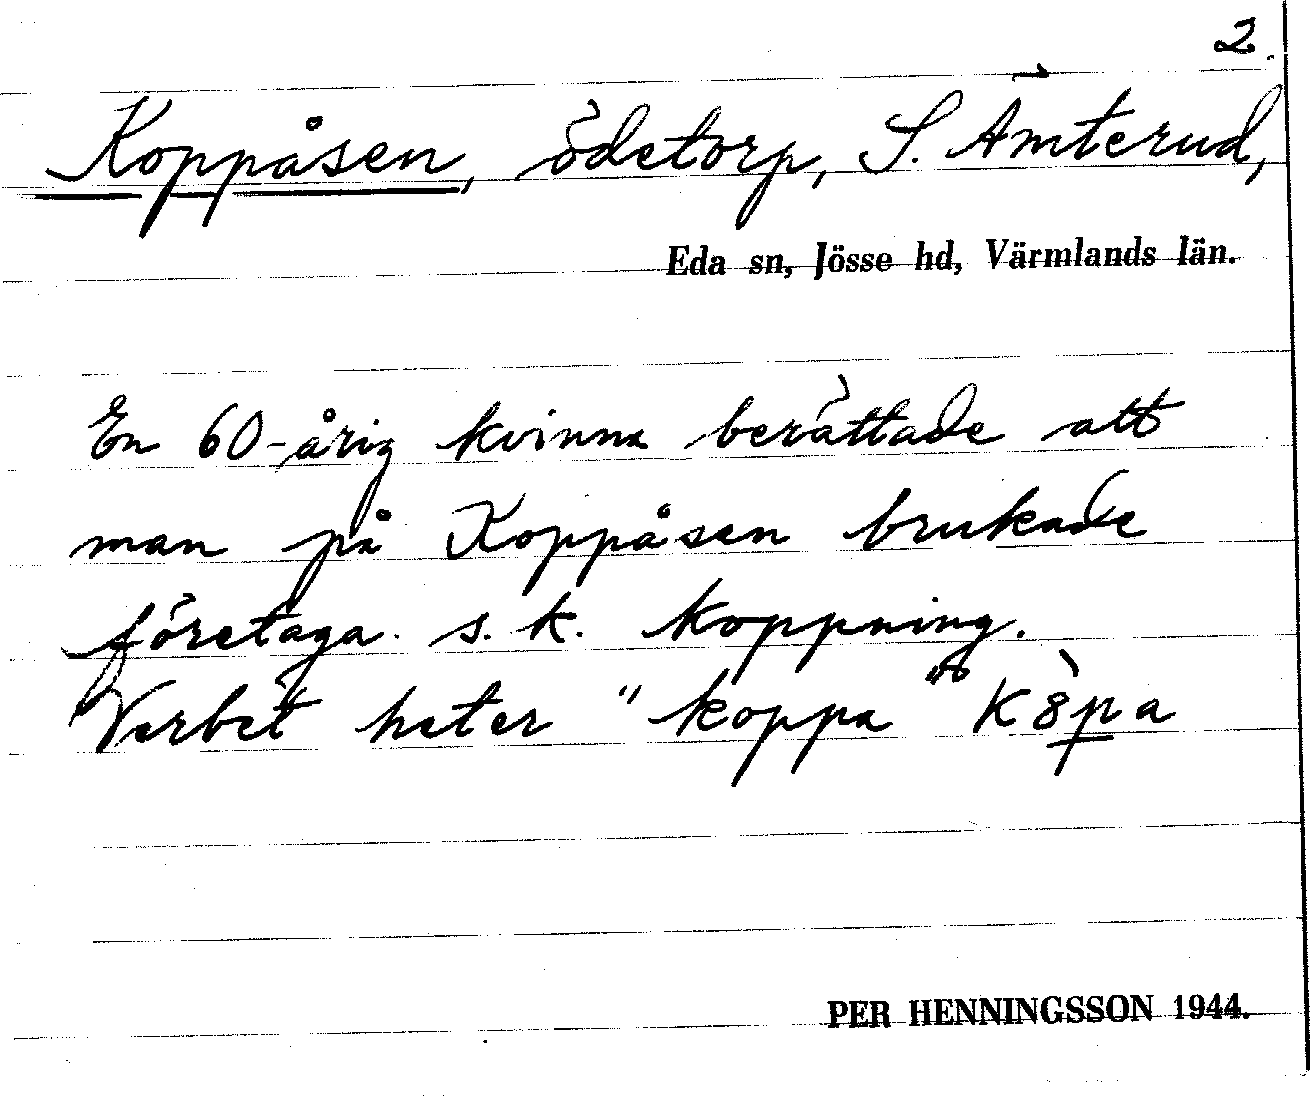 2.
Koppåsen, ödetorp, S. Ämterud,
Eda sn, Jösse hd, Värmlands län.
En 60-årig kvinna berättade att
man på Koppåsen brukade
företaga s. k. koppning.
Verbet heter "koppa" k8̀pa
PER HENNINGSSON 1944.